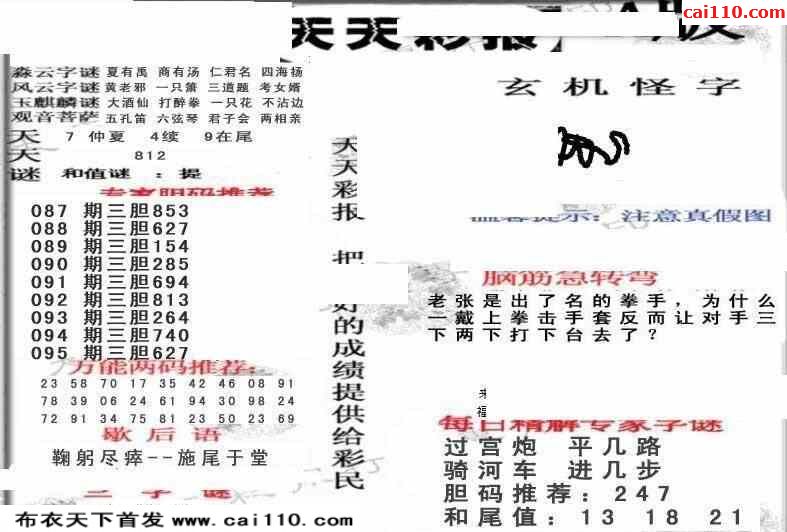 cai110.com
天天彩报
版
淼云字谜 夏有禹 商有汤 仁君名 四海扬
风云字谜 黄老邪 一只箫 三道题 考女婿
玉麒麟谜 大酒仙 打醉拳 一只花 不沾边
观音菩萨 五孔笛 六弦琴 君子会 两相亲
天 7 仲夏 4续 9在尾
天 812
谜 和值谜 : 提
专家胆码推荐
087 期三胆853
088 期三胆627
089 期三胆154
090 期三胆285
091 期三胆694
092 期三胆813
093 期三胆264
094 期三胆740
095 期三胆627
万能两码推荐:
23 58 70 17 35 42 46 08 91
78 39 06 24 61 94 30 98 24
72 91 34 75 81 23 50 23 69
歇后语
鞠躬尽瘁--施尾于堂
三字谜
布衣天下首发 www.cai110.com
天天彩报 把好的成绩提供给彩民
玄机怪字
温馨提示: 注意真假图
脑筋急转弯
老张是出了名的拳手，为什么
一戴上拳击手套反而让对手三
下两下打下台去了？
福
每日精解专家字谜
过宫炮 平几路
骑河车 进几步
胆码推荐: 247
和尾值: 13 18 21